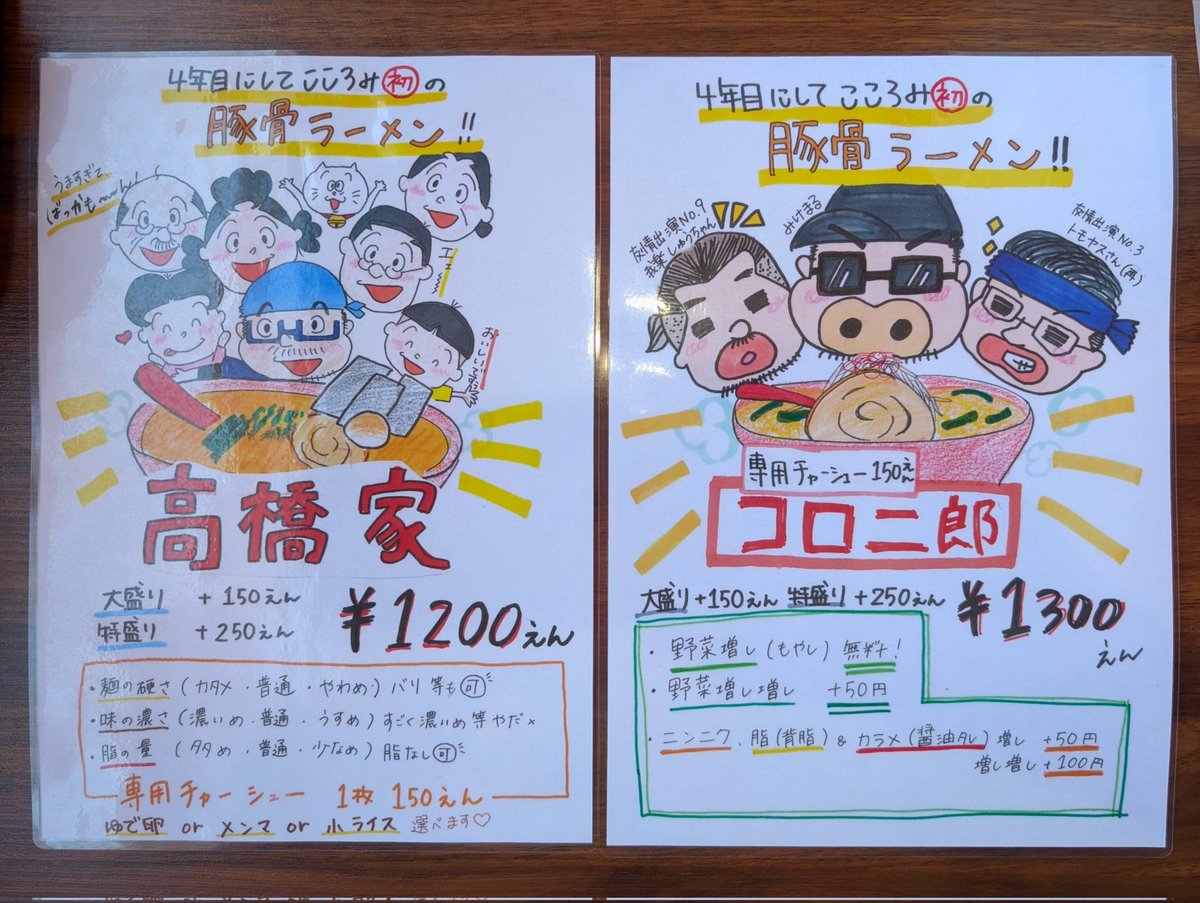 4年目にして こころみ 初 の
豚骨ラーメン!!
うますぎて、
ばっかも〜〜ん!
エー
おいしいですぅ
高橋家
大盛り +150えん
特盛り +250えん
¥1200えん
・麺の硬さ (カタメ・普通・やわめ) バリ等も可
・味の濃さ (濃いめ・普通・うすめ) すごく濃いめ等やだ×
・脂の量 (多め・普通・少なめ) 脂なし可
専用チャーシュー 1枚 150えん
ゆで卵 or メンマ or 小ライス 選べます♡
4年目にして こころみ 初 の
豚骨ラーメン!!
友情出演No.9
我楽 しゅうちゃん
みけまる
友情出演No.3
トモヤスさん(再)
専用チャーシュー150えん
コロ二郎
大盛り+150えん 特盛り+250えん
¥1300えん
・野菜増し(もやし) 無料!
・野菜増し増し +50円
・ニンニク、脂(背脂) & カラメ(醤油タレ)増し +50円
増し増し +100円